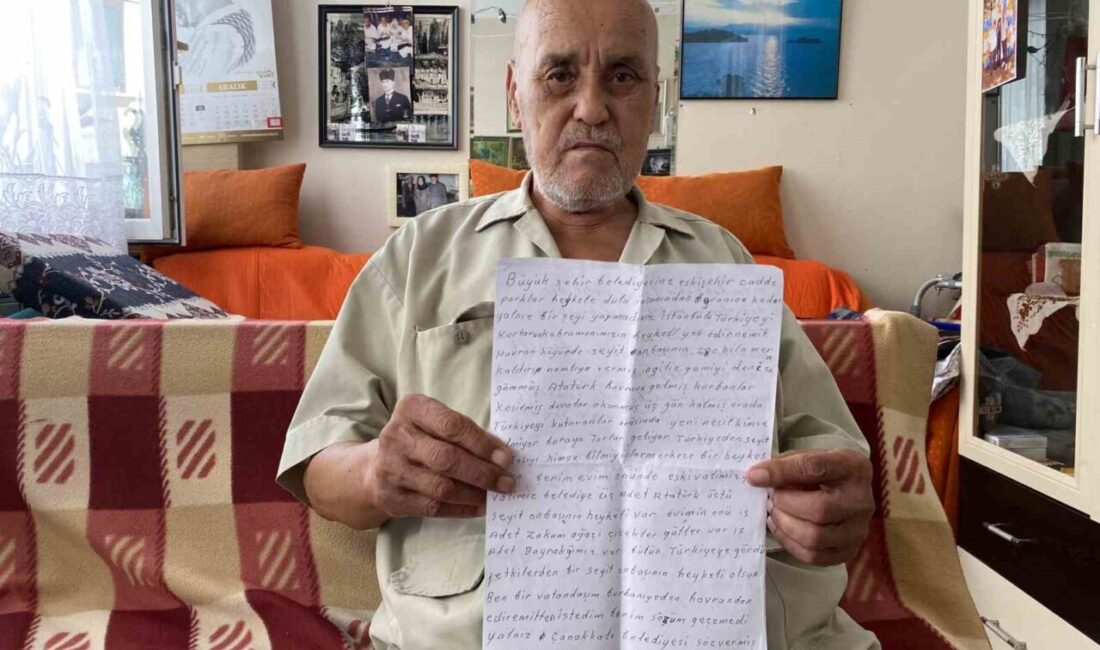 ARALIK
Büyük şehir belediyesine eskişehir cadde
parklar heykele dolu
yalnız bir şeyi yapmadınız istanbulu Türkiyeyi
Kurtaran kahramanımızın heykeli yok edirnemit
Havran köyünde seyit onbaşının 280 kilo mer
kaldırıp namluya vermiş ingiliz gemiyi denize
gömmüş Atatürk havrana gelmiş kurbanlar
kesilmiş duvalar okunmuş üç gün kalmış orada
Türkiyeyi kutaranlar arasında yeni nesil kimse
bilmiyor buraya Turlar geliyor Türkiyeden seyit
kimse bilmiyorlar merkeze bir heykel
benim evim önünde eski valimiz
valimiz belediye üç Adet Atatürk üstü
seyit onbaşının heykeli var evimin önü iş
Adet Zakum ağaçı çiçekler güller var iz
Adet Bayrağımız var bütün Türkiyeye gördü
yetkilerden bir seyit onbaşının heykeli olsun
Ben bir vatandaşım burhaniyeden havrandan
ediremitten istedim benim sözüm geçemedi
yalnız Çanakkale belediyesi söz vermiş